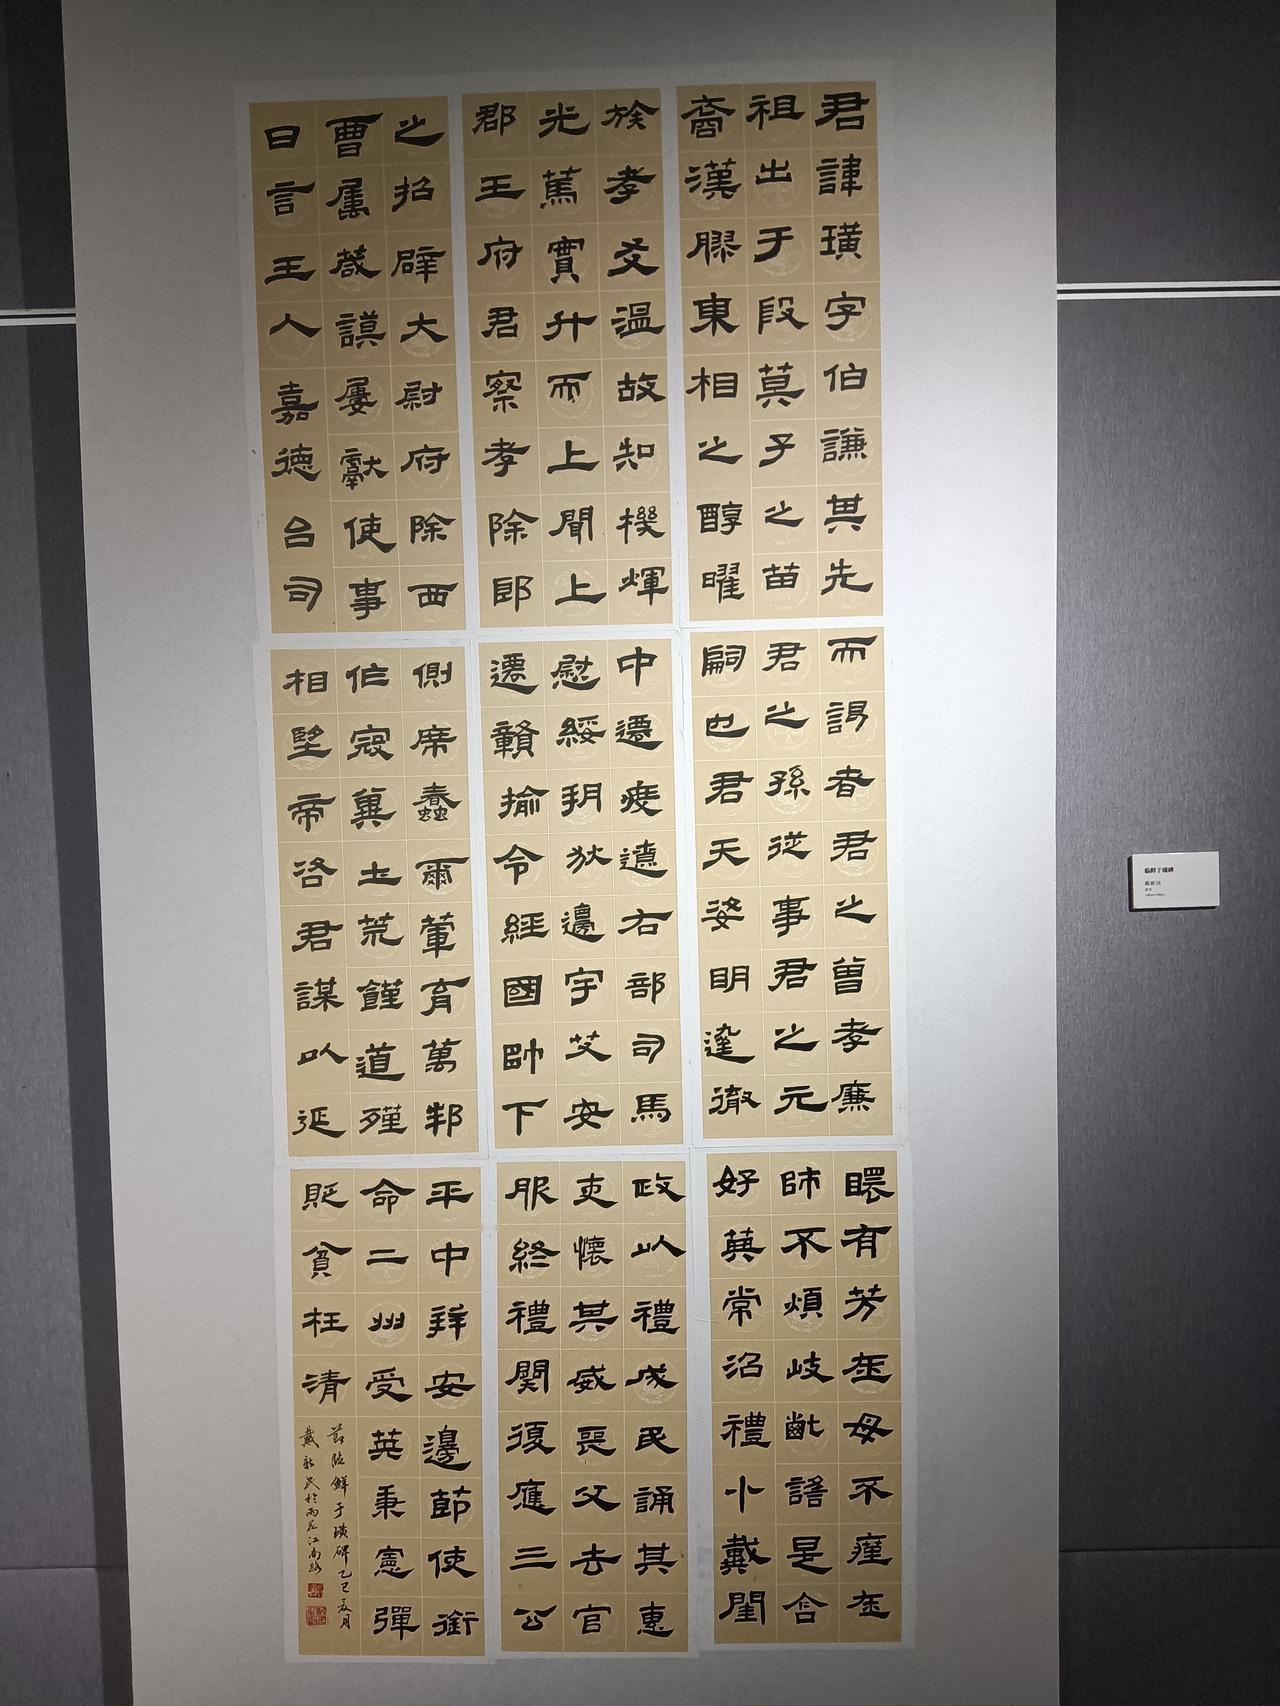 君諱璜字伯謙其先
祖出于殷箕子之苗
裔漢膠東相之醇曜
而謁者君之曾孝廉
君之孫從事君之元
嗣也君天姿明達徹
瞏有芳在母不瘇在
師不煩岐齔謠是含
好典常治禮小戴閨
族孝友溫故知機煇
光篤實升而上聞上
郡王府君察孝除郎
中遷度遼右部司馬
慰綏朔狄邊宇艾安
遷贛榆令經國帥下
政以禮成民誦其惠
吏懷其威喪父去官
服終禮闋復應三公
之招辟大尉府除西
曹屬箴謨屢獻使事
日言王人嘉德台司
側席蠢爾葷育萬邦
作寇冀土荒饉道殣
相望帝咨君謀以延
平中拜安邊節使銜
命二州受莢秉憲彈
貶貪枉清
節臨鮮于璜碑乙巳夏月
戴新民於雨花江南路
臨鮮于璜碑
戴新民